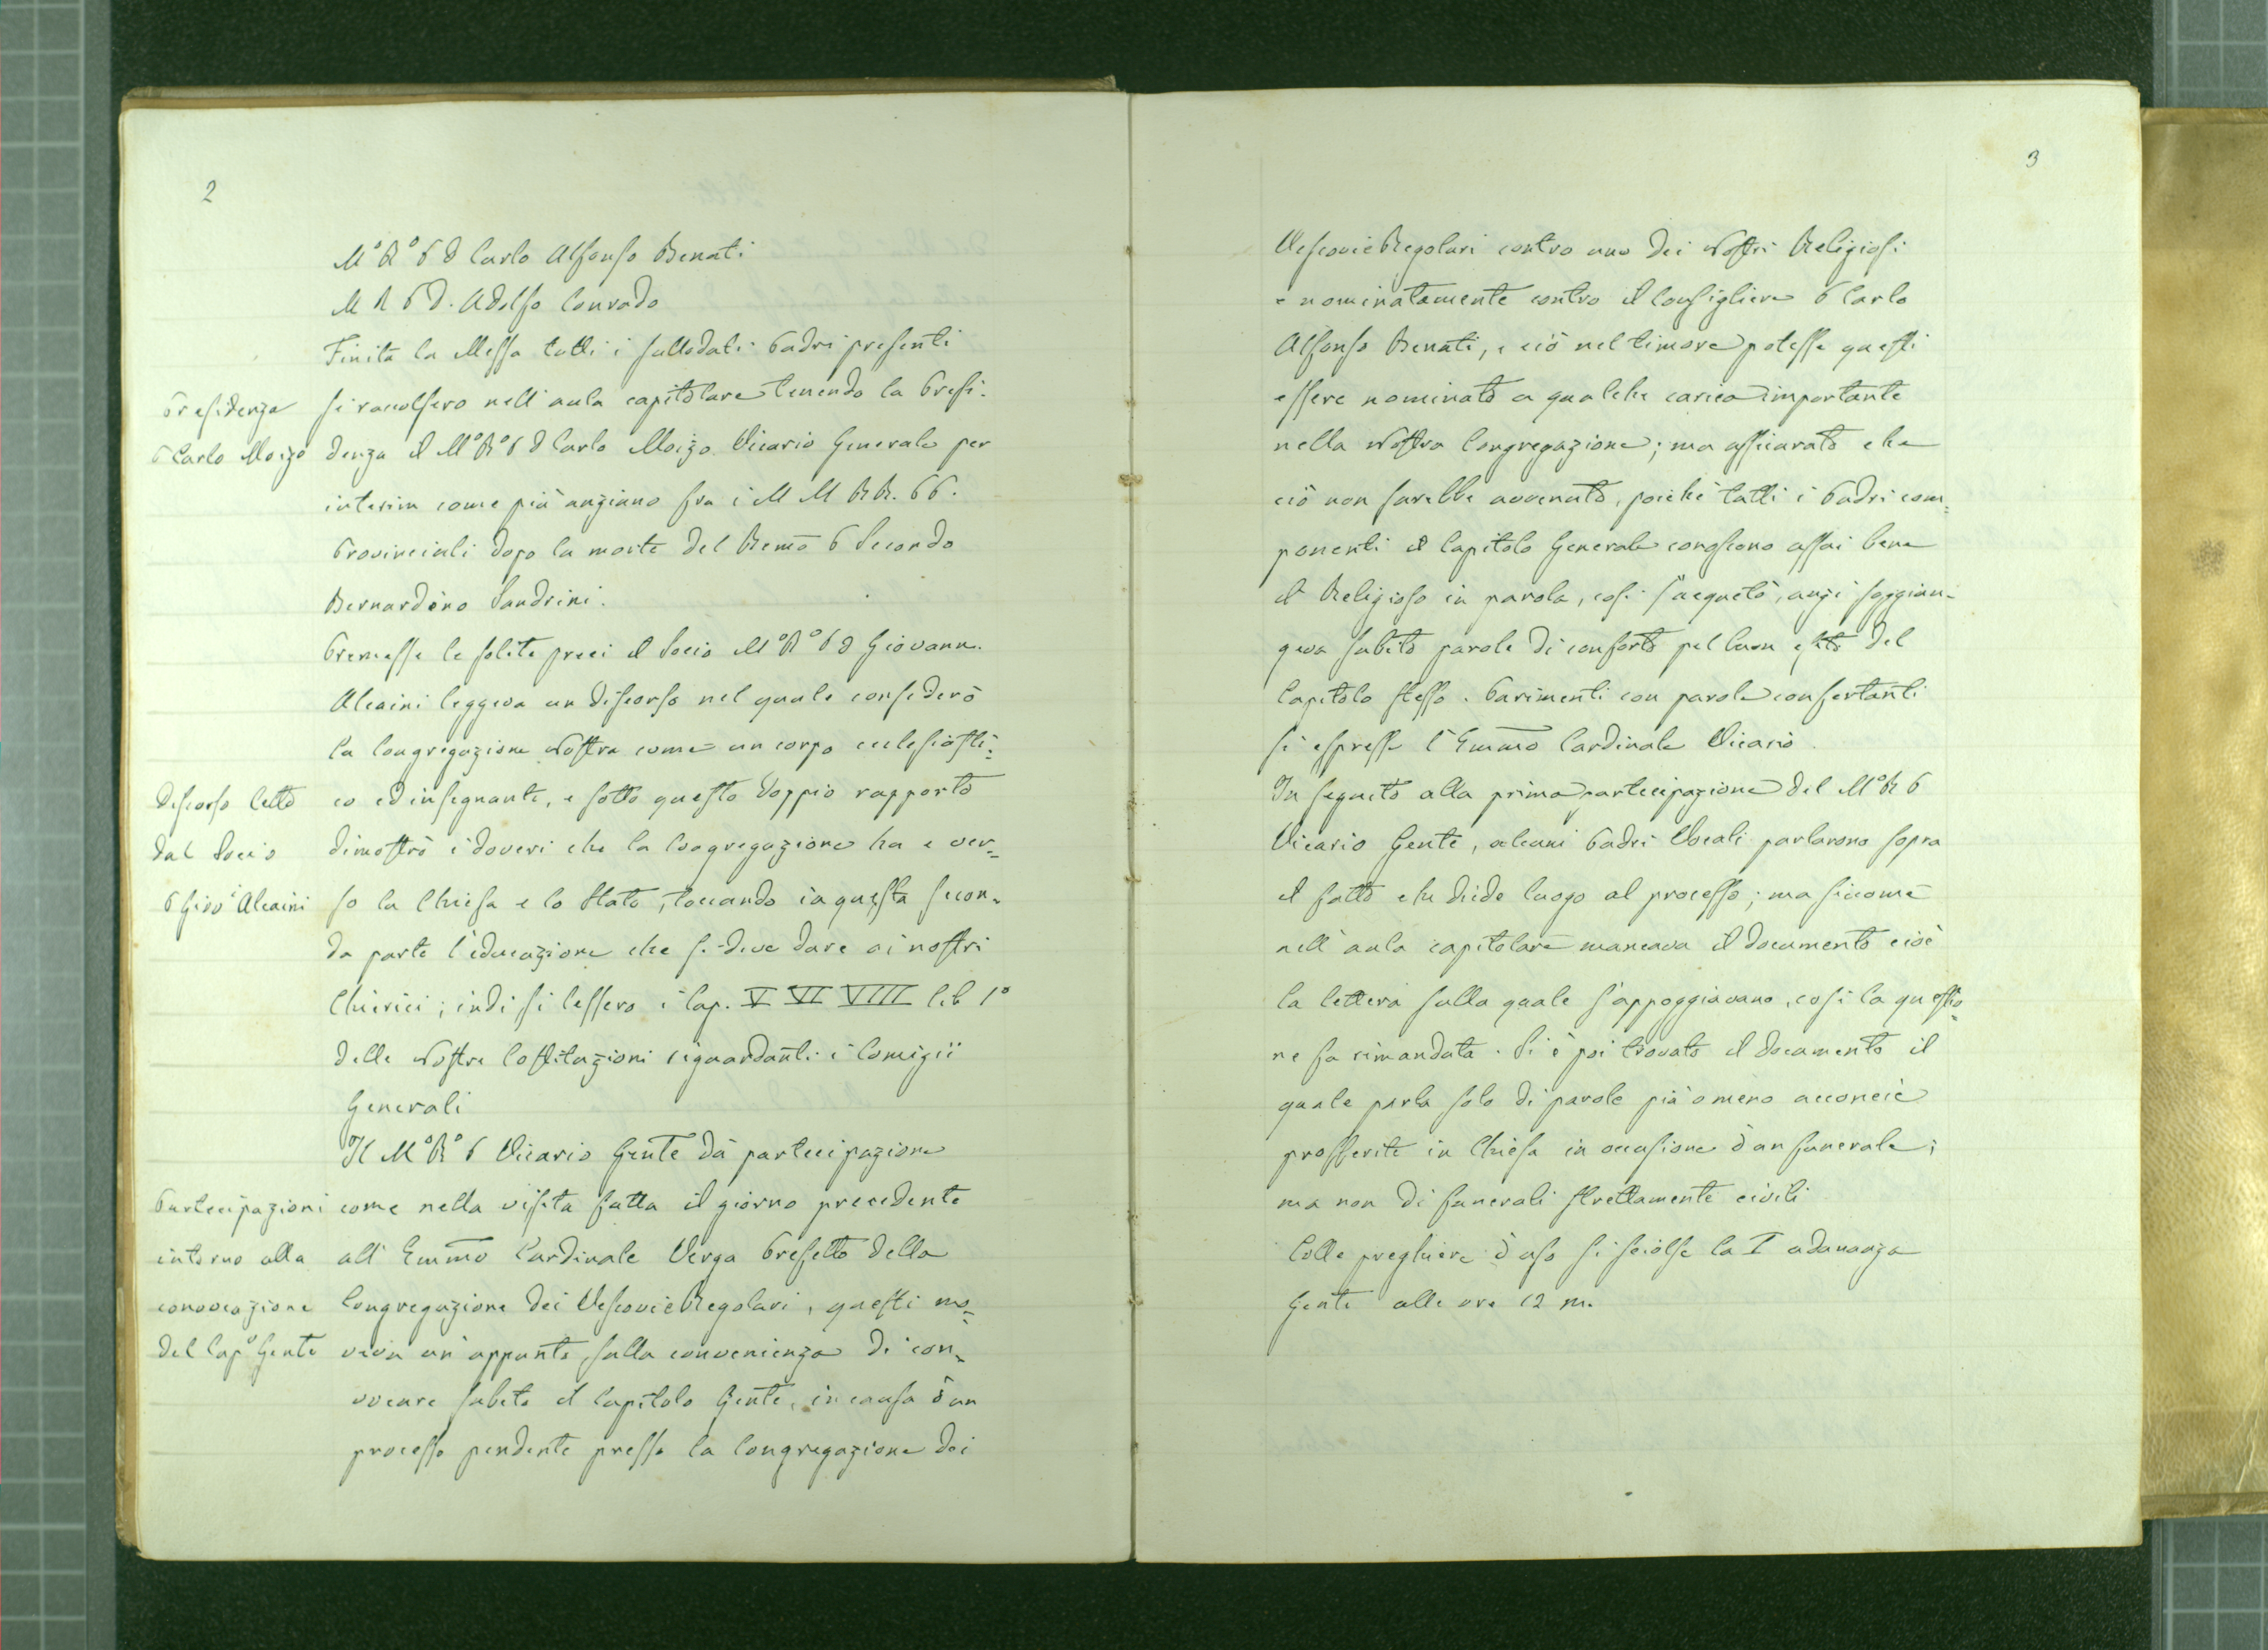 2
M.º R.º P D Carlo Alfonso Benati
M R P D. Adolfo Conrado
Finita la Messa tutti i sullodati Padri presenti
Presidenza
si raccolsero nell'aula capitolare tenendo la Presi-
P Carlo Moizo
denza il M.º R.º P D Carlo Moizo Vicario Generale per
interim come più anziano fra i M M R R. P P.
Provinciali dopo la morte del Remo P Secondo
Bernardino Sandrini.
Premesse le solite preci il Socio M.º R.º P D Giovann.
Alcaini leggeva un discorso nel quale considerò
la Congregazione Nostra come un corpo ecclesiasti=
Discorso letto
co ed insegnante, e sotto questo doppio rapporto
dal Socio
dimostrò i doveri che la Congregazione ha e ver=
P Giov.i Alcaini
so la Chiesa e lo Stato, toccando in questa secon-
da parte l'educazione che si deve dare ai nostri
Chierici; indi si lessero i Cap. V VI VIII lib 1º
delle Nostre Costituzioni riguardanti i Comizii
Generali
Il M.º R.º P Vicario Gente dà partecipazione
Partecipazioni
come nella visita fatta il giorno precedente
intorno alla
all' Emmo Cardinale Verga Prefetto della
convocazione
Congregazione dei Vescovi e Regolari, questi mo=
del Cap.º Gente
veva un appunto sulla convenienza di con-
vocare subito il Capitolo Gente, in causa d'un
processo pendente presso la Congregazione dei
3
Vescovi e Regolari contro uno dei Nostri Religiosi
e nominatamente contro il Consigliere P Carlo
Alfonso Benati, e ciò nel timore potesse questi
essere nominato a qualche carica importante
nella Nostra Congregazione; ma assicurato che
ciò non sarebbe avvenuto, poichè tutti i Padri com=
ponenti il Capitolo Generale congscono assai bene
il Religioso in parola, così s'acquetò, anzi soggiun-
geva subito parole di conforto pel buon esito del
Capitolo stesso. Parimenti con parole confortanti
si espresse l'Emmo Cardinale Vicario.
In seguito alla prima partecipazione del M.º R P
Vicario Gente, alcuni Padri Vocali parlarono sopra
il fatto che diede luogo al processo; ma siccome
nell'aula capitolare mancava il documento cioè
la lettera sulla quale s'appoggiavano, così la questio=
ne fu rimandata. Si è poi trovato il documento il
quale parla solo di parole più o meno acconcie
profferite in Chiesa in occasione d'un funerale;
ma non di funerali strettamente civili
Colle preghiere d'uso si sciolse la I adunanza
Gente alle ore 12 m.